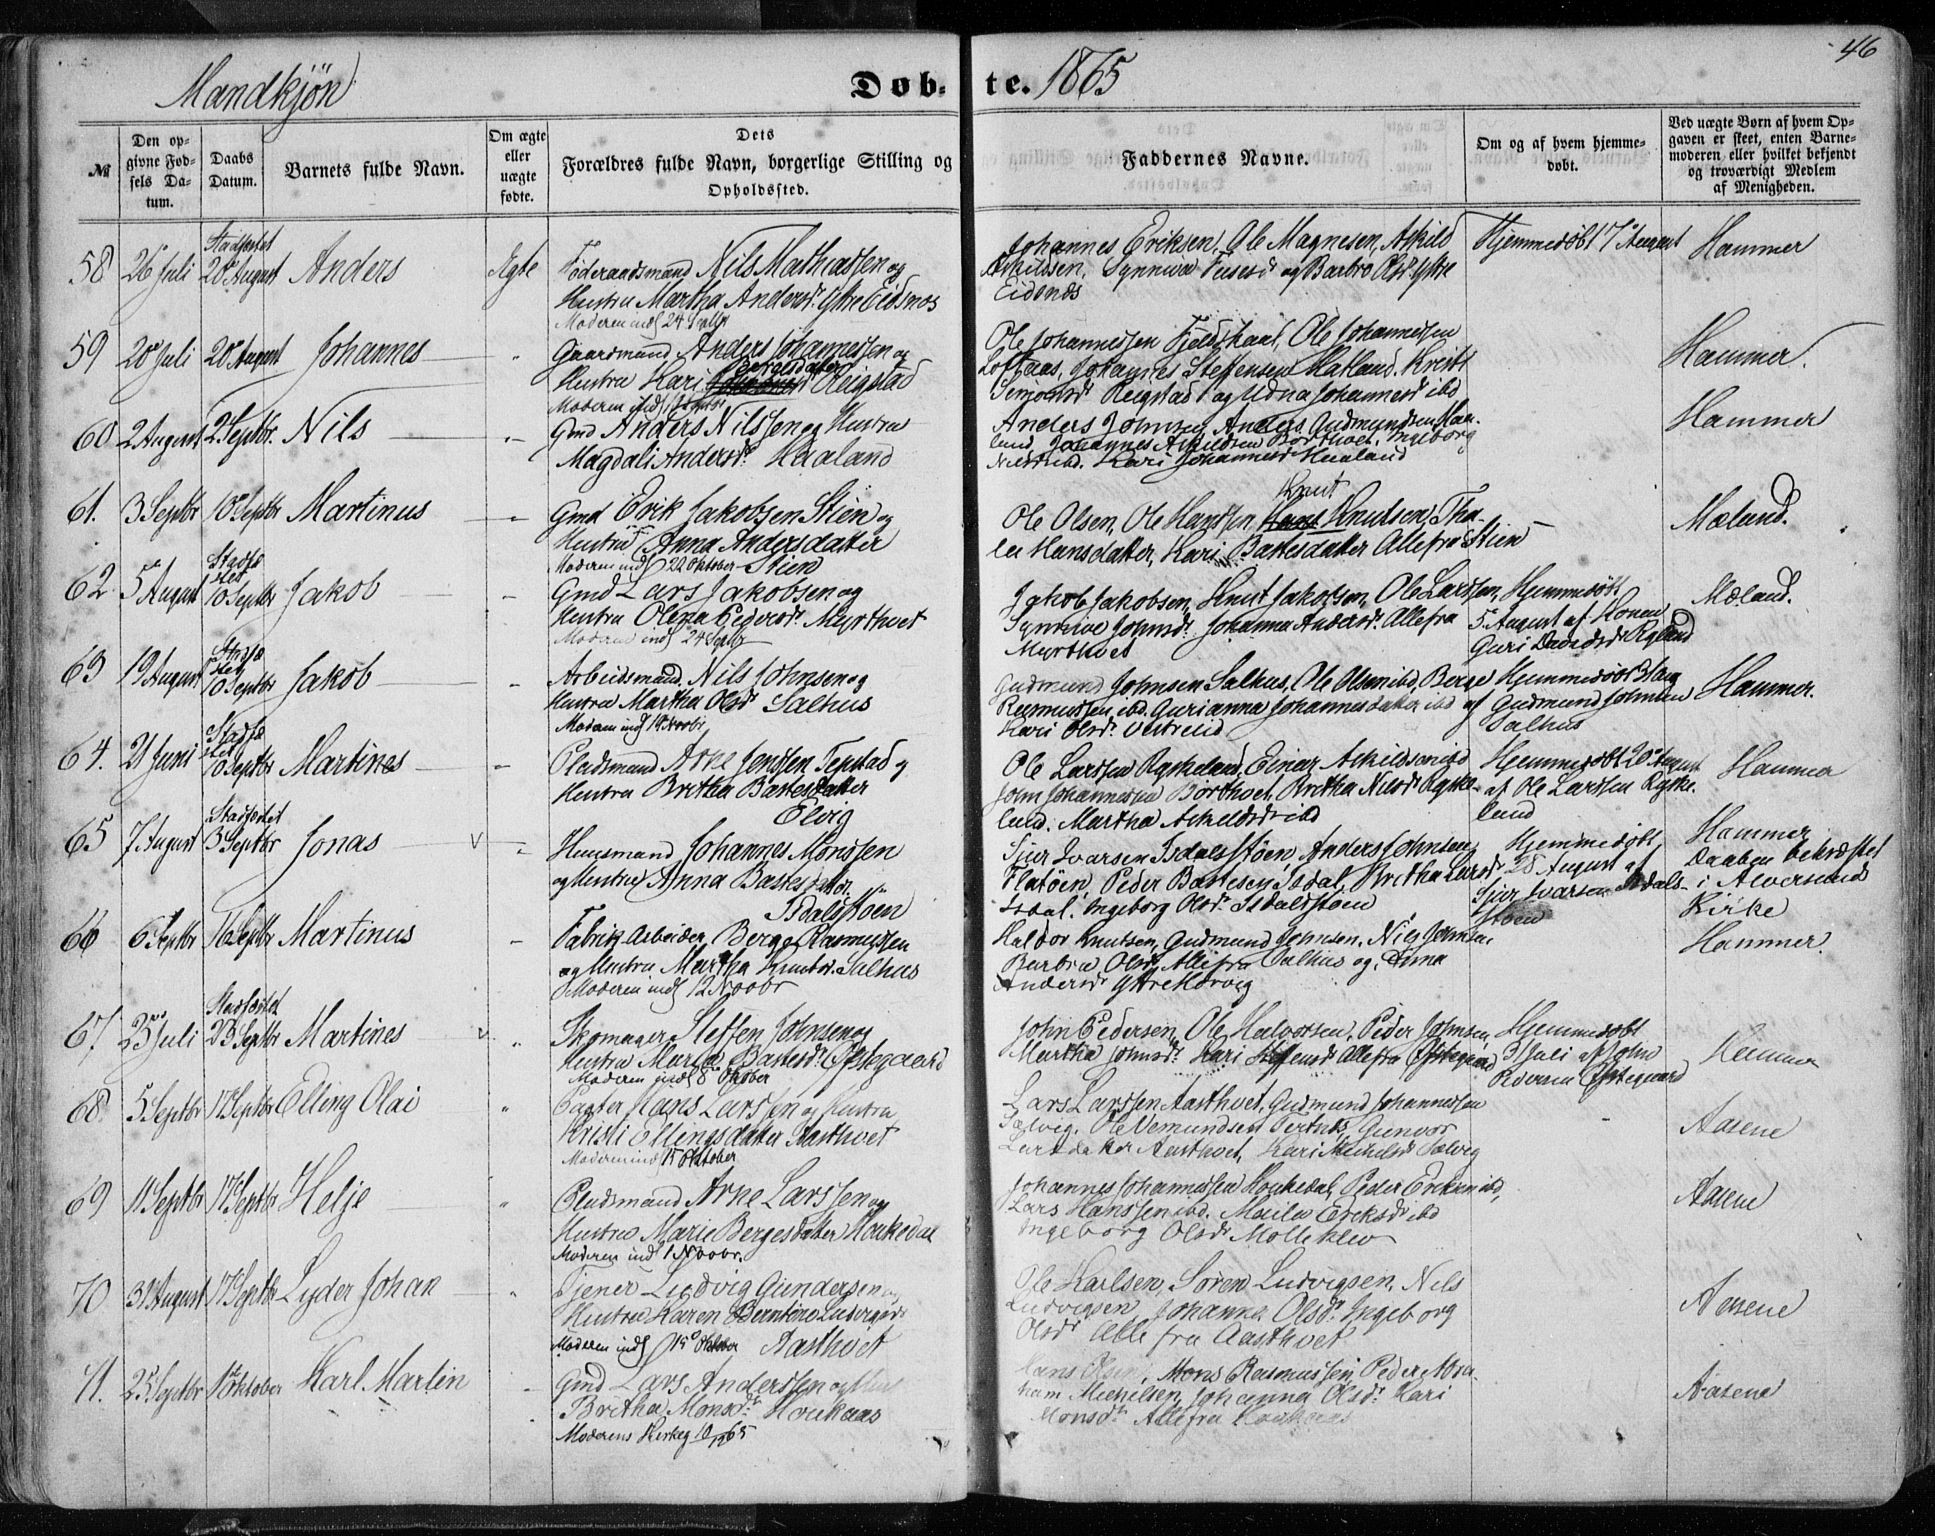 46
Mandkjön
Døb-te. 1865
№
Den op-
givne Fød-
sels Da-
tum.
Daabs
Datum.
Barnets fulde Navn.
Om ægte
eller
uægte
fødte.
Dets
Forældres fulde Navn, borgerlige Stilling og
Opholdssted.
Faddernes Navne.
Om og af hvem hjemme-
døbt.
Ved uægte Børn af hvem Op-
gaven er skeet, enten Barne-
moderen eller hvilket bekjendt
og troværdigt Medlem
af Menigheden.
58 26 Juli Stadfæstet 20 August Anders Ægte
Føderaadsmand Nils Mathiassen og
Hustru Martha Andersd. Ytre Eidsnes
Moderen indl 24 Septbr
Johannes Eriksen, Ole Magnesen, Askild
Askildsen, Synniva og Barbro Olsd. Ytre
Eidsnes
Hjemmedøbt 17 August
Hammer
59 20 Juli 20 August Johannes
Gaardmand Anders Johannessen og
Hustru Kari Bergesdatter Reigstad
Moderen indl
Ole Johannessen Fjeldskaal, Ole Johannessen
Loftaas, Johannes Steffensen Hatland, Kristi
Simonsd. Reigstad og Udna Johannesd ibd
Hammer.
60 2 August 2 Septbr. Nils
Gmd Anders Nilssen og Hustru
Magdali Andersd. Haaland
Anders Johnsen, Anders Gudmundsen Haa-
land, Johannes Askildsen Børthvet, Ingeborg
Nilsd ibd. Kari Johannesd Haaland
Hammer
61. 3 Septbr 10 Septbr Martinus
Gmd Erik Jakobsen Stien og
Hustru Anna Andersdatter
Moderen indl 22 Oktober Stien
Knut
Ole Olsen, Ole Hanssen, Hans Knutsen, Tha-
lea Hansdatter, Kari Bastesdatter Alle fra Stien
Mæland.
62. 5 August Stadfæ stet 10 Septbr Jakob
Gmd Lars Jakobsen og
Hustru Olena Pedersd. Myrthvet
Moderen indl 24 Septbr
Jakob Jakobsen, Knut Jakobsen, Ole Larssen,
Synnive Johnsd. Johanna Andersd. Alle fra
Myrthvet
Hjemmedøbt
5 August af Konen
Guri Davidsd Ryland
Mæland.
63 19 August Stadfæ stet 10 Septbr Jakob
Arbeidsmand Nils Johnsen og
Hustru Martha Olsd Salhus
Moderen indl Novbr.
Gudmund Johnsen Salhus, Ole Olsen ibd, Berge
Rasmussen ibd. Gurianna Johannesdatter ibd
Kari Olsd. Vestreiid
Hjemmedøbt
af Gudmund Johnsen
Salhus
Hammer.
64. 21 Juni Stadfæ stet 10 Septbr Martines
Pladsmand Arne Jenssen Tepstad og
Hustru Britha Bastesdatter
Elvig
Ole Larssen Ryskeland, Einar Askildsen ibd
John Johannessen Børthvet, Britha Nilsd Ryske-
land. Martha Askildsd ibd
Hjemmedøbt 20 August
af Ole Larssen Ryske-
land
Hammer
65 7 August Stadfæstet 3 Septbr Jonas
Huusmand Johannes Monssen
og Hustru Anna Bastesdatter
Isdalsstøen
Sjur Ivarsen Isdalsstøen, Anders Johnsen
Flatøen, Peder Bastesen Isdal, Britha Larsd.
Isdal. Ingeborg Olsd. Isdalsstøen
Hjemmedøbt
28 August af
Sjur Ivarsen Isdals-
støen
Hammer
Daaben bekræftet
i Alversunds
Kirke
66 6 Septbr 16 Septbr Martinus
Fabrik Arbeider Berge Rasmussen
og Hustru Martha Knutsd. Salhus
Moderen indl 12 Novbr
Haldor Knutsen, Gudmund Johnsen, Nils Johnsen
Barbra Olsd. Alle fra Salhus og Anna
Andersd. Ytre Morvig
Hammer.
67. 25 Juli Stadfæstet 23 Septbr Martines
Skomager Steffen Johnsen og
Hustru Marta Bastesd. Øfstegaard
Moderen indl 8 Oktober
John Pedersen, Ole Halvorsen, Peder Johnsen,
Martha Johnsd. Kari Steffensd Alle fra Øfstegaard
Hjemmedøbt
31 Juli af John
Pedersen Øfstegaard
Hammer
68. 5 Septbr 17 Septbr Elling Olai
Pagter Hans Larssen og Hustru
Kristi Ellingsdatter Aasthvet
Moderen indl 15 Oktober
Lars Larssen Aasthvet, Gudmund Johannessen
Salvig, Ole Vemundsen Tertnes, Gunvor
Larsdatter Aasthvet, Kari Michelsd Salvig
Aasene
69 11 Septbr 17 Septbr Helje
Pladsmand Arne Larssen og
Hustru Marie Bergesdatter Houkedal
Moderen indl 1 Novbr.
Johannes Johannessen Houkedal, Peder Eriksen ibd,
Lars Hanssen ibd. Eriksd ibd
Ingeborg Olsd. Mølleklev
Aasene
70 31 August 17 Septbr Lyder Johan
Tjener Ludvig Gundersen og
Hustru Karen Berntine Ludvigsd.
Moderen indl 15 Oktober Aasthvet
Ole Karlsen, Søren Ludvigsen, Nils
Ludvigsen Johanna Olsd. Ingeborg
Olsd. Alle fra Aasthvet
Aasene
71. 25 Septbr 1 Oktober Karl Martin
Gmd Lars Anderssen og Hus
Britha Monsd. Houkaas
Moderens Kirkeg 10/12 65
Hans Olsen, Mons Rasmussen, Peder Abra-
ham Michelsen, Johanna Olsd. Kari
Monsd. Alle fra Houkaas
Aasene